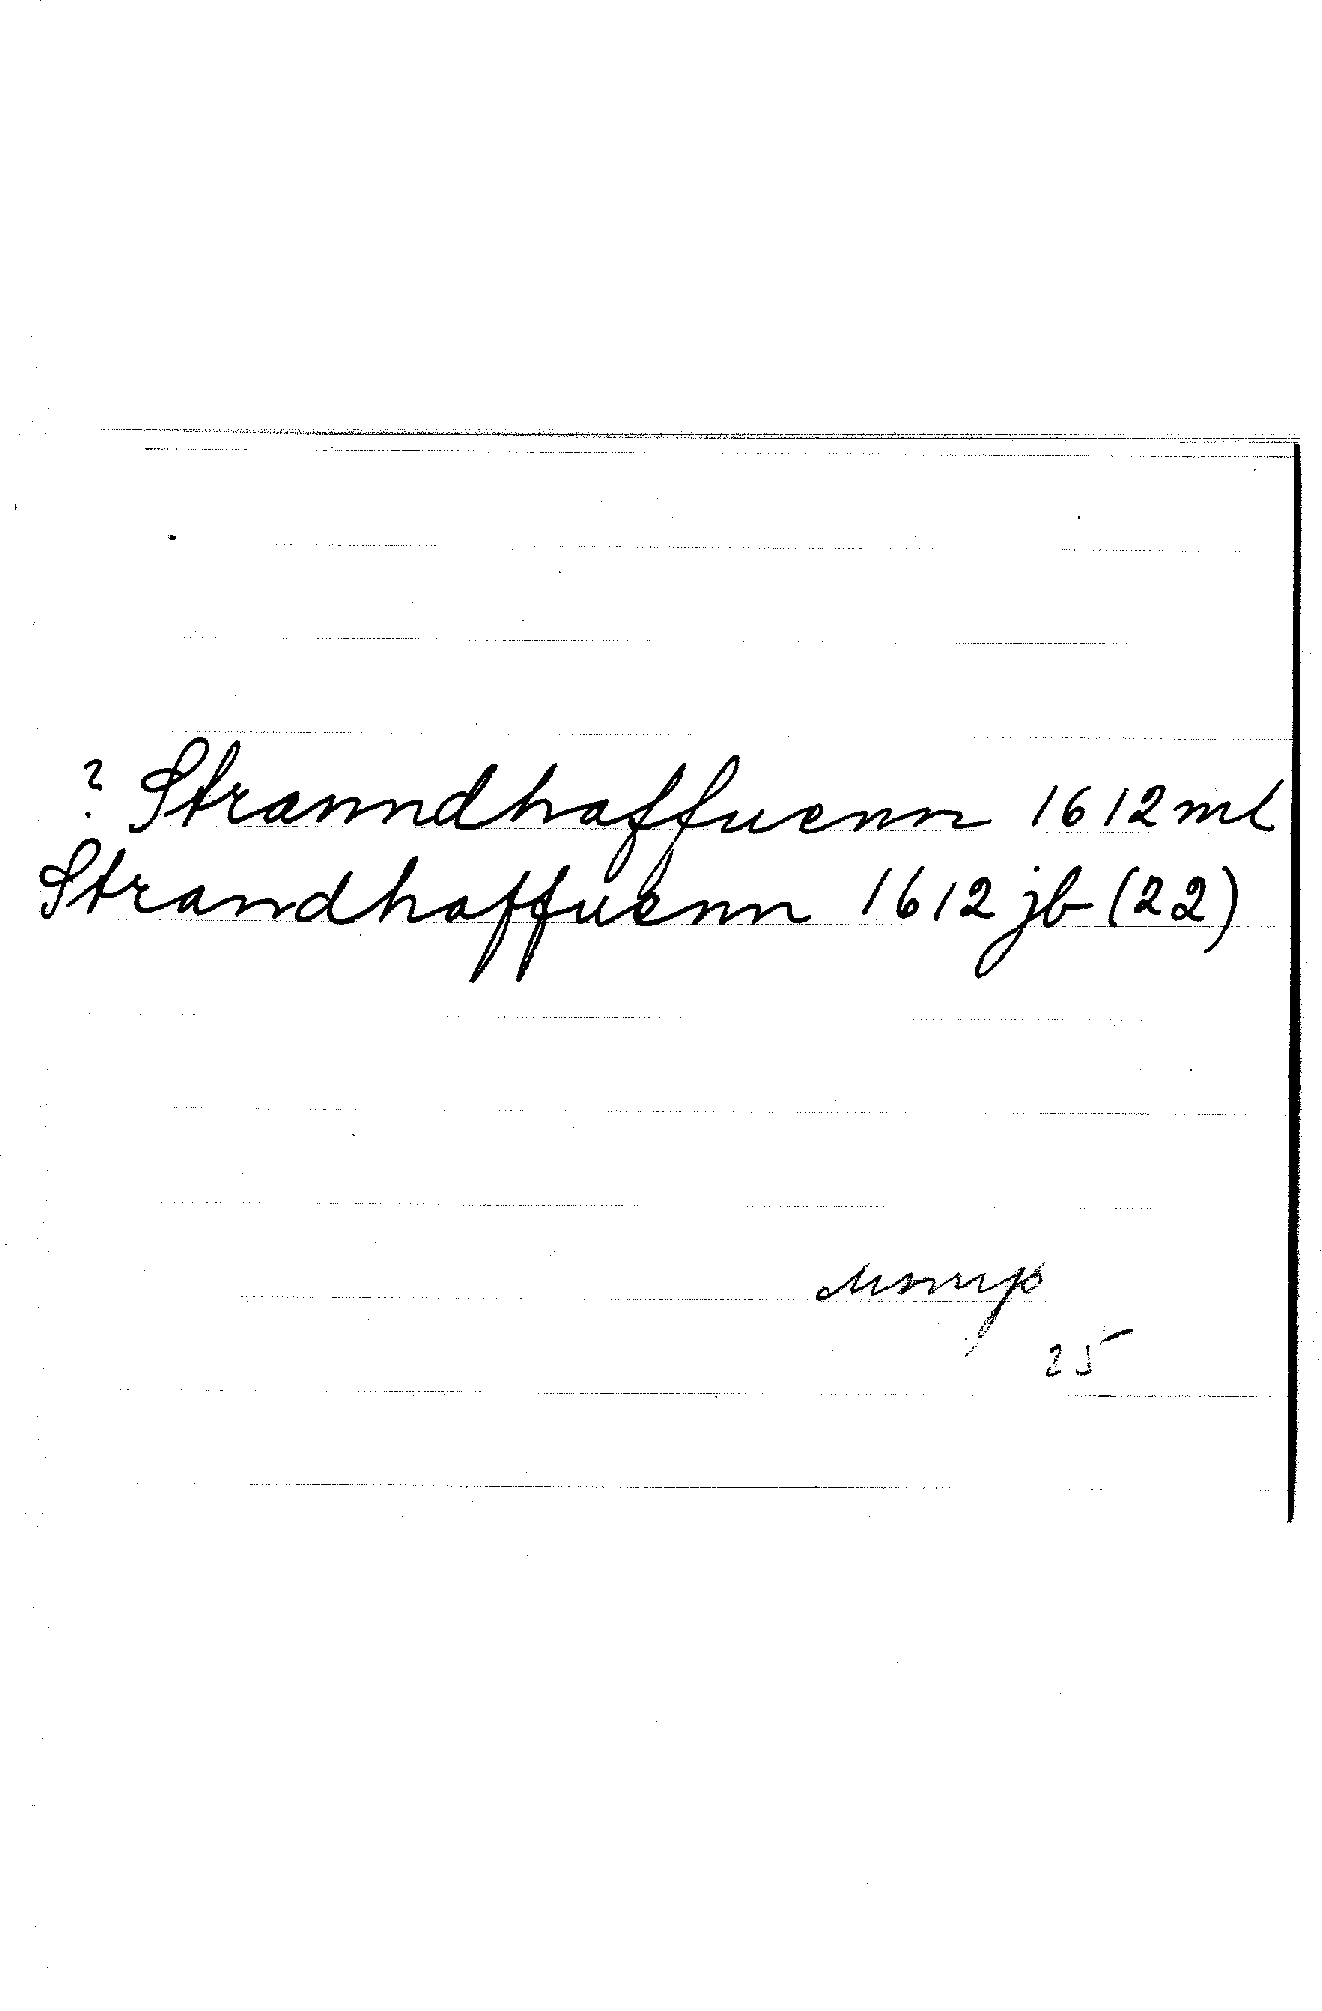 ? Stranndhaffuenn 1612 ml
Strandhaffuenn 1612 jb (22)
25